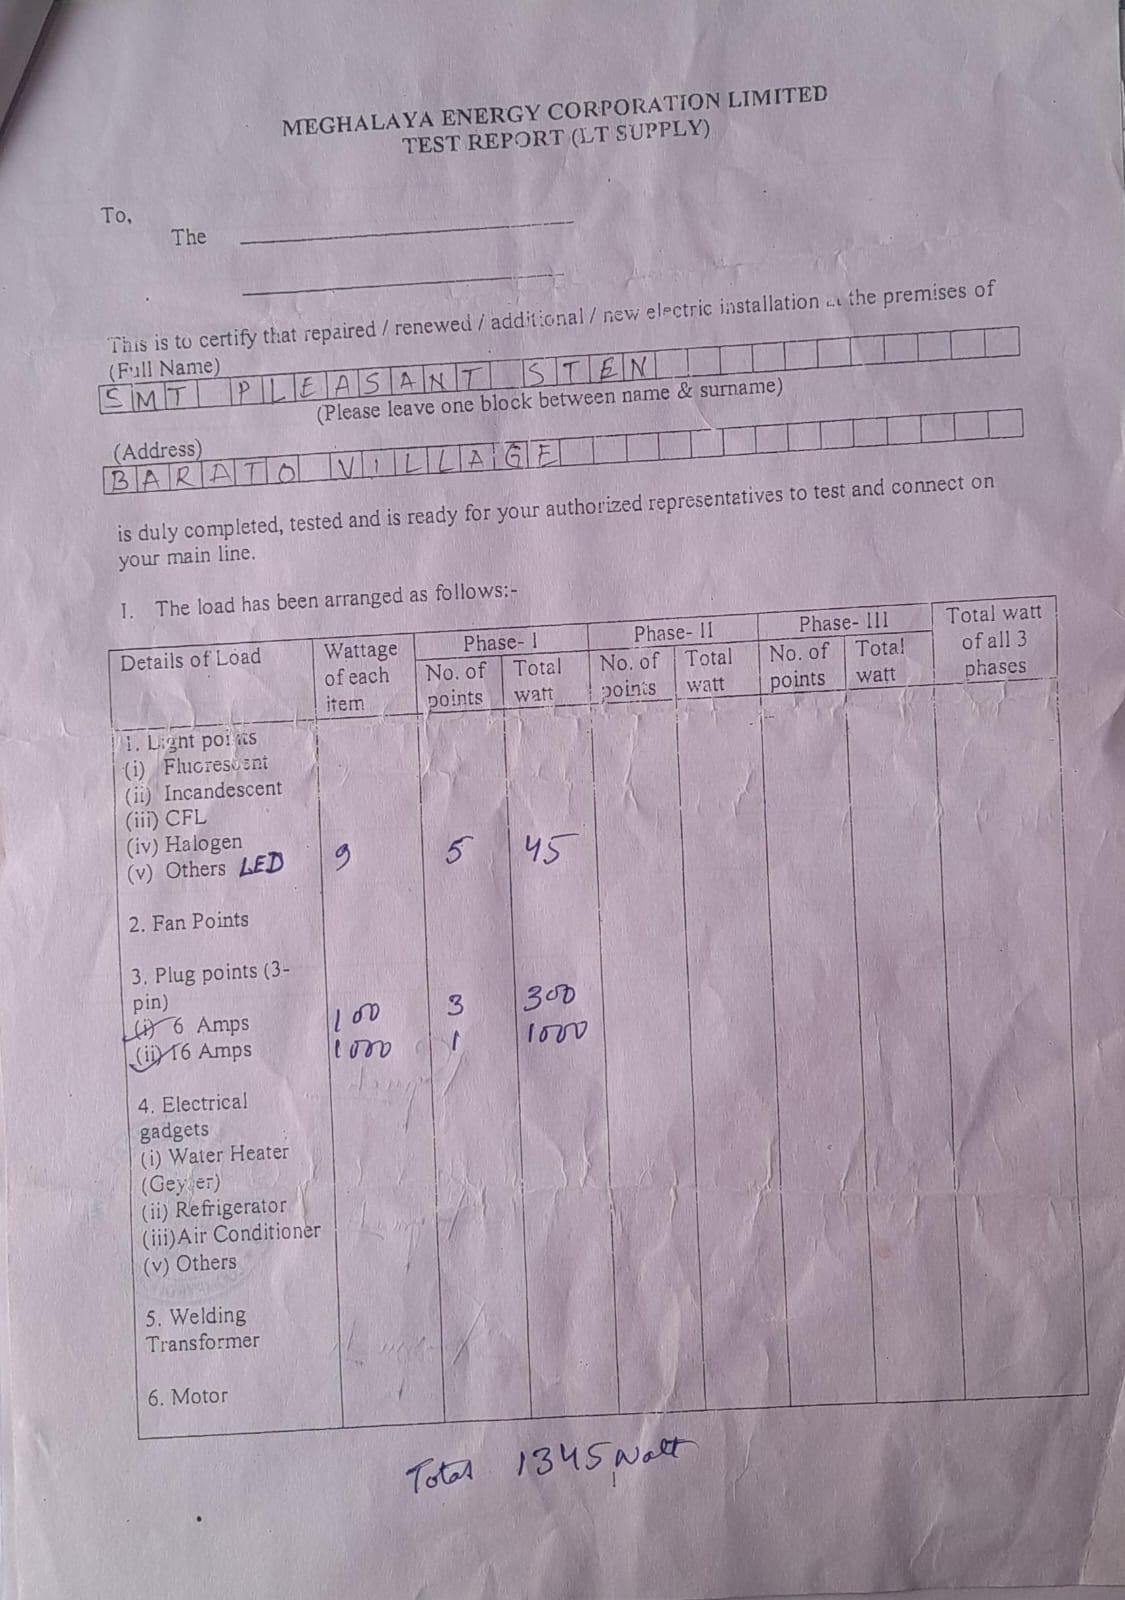 MEGHALAYA ENERGY CORPORATION LIMITED
TEST REPORT (LT SUPPLY)
To,
The
This is to certify that repaired / renewed / additional / new electric installation at the premises of
(Full Name)
SMT PLEASANT STEN
(Please leave one block between name & surname)
(Address)
BARATO VILLAGE
is duly completed, tested and is ready for your authorized representatives to test and connect on
your main line.
I. The load has been arranged as follows:-
Details of Load Wattage of each item Phase- I Phase- II Phase- III Total watt of all 3 phases
No. of points Total watt No. of points Total watt No. of points Total watt
1. Light points
(i) Fluorescent
(ii) Incandescent
(iii) CFL
(iv) Halogen
(v) Others LED 9 5 45
2. Fan Points
3. Plug points (3-
pin)
(i) 6 Amps 100 3 300
(ii) 16 Amps 1000 1 1000
4. Electrical
gadgets
(i) Water Heater
(Geyser)
(ii) Refrigerator
(iii) Air Conditioner
(v) Others
5. Welding
Transformer
6. Motor
Total 1345 Watt